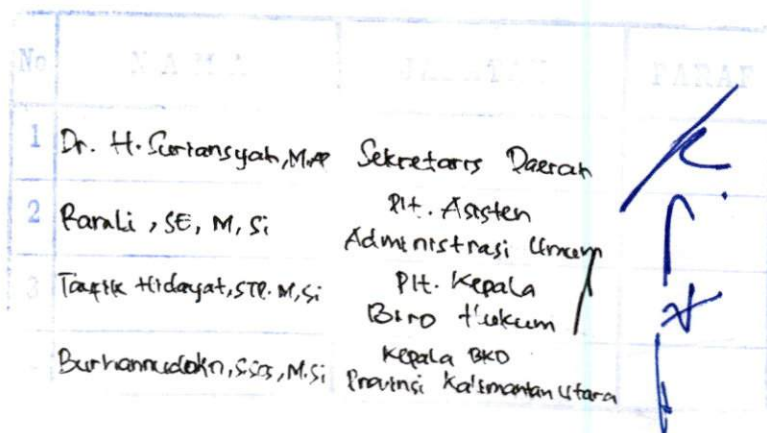 No NAMA JABATAN PARAF
1 Dr. H. Suriansyah, M.AP Sekretaris Daerah
2 Ramli, SE, M, Si Plt. Asisten
Administrasi Umum
3 Taufik Hidayat, STP. M, Si Plt. Kepala
Biro Hukum
Burhanuddin, S.Sos, M.Si Kepala BKD
Provinsi Kalimantan Utara